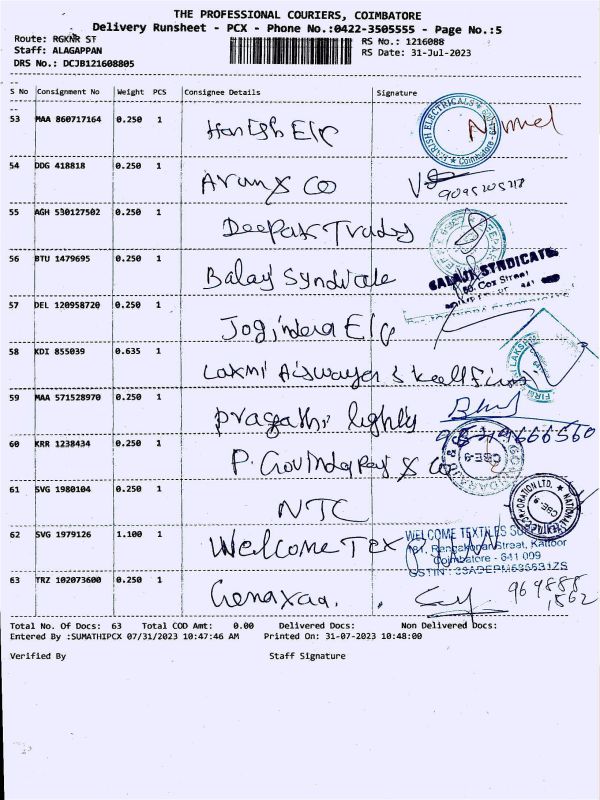 THE PROFESSIONAL COURIERS, COIMBATORE
Delivery Runsheet - PCX - Phone No.:0422-3505555 - Page No.:5
Route: RGKNR ST
RS No.: 1216088
Staff: ALAGAPPAN
RS Date: 31-Jul-2023
DRS No.: DCJB121608805
S No Consignment No Weight PCS Consignee Details Signature
53 MAA 860717164 0.250 1
Harish E/p
54 DDG 418818 0.250 1
Arun & Co
9095205217
55 AGH 530127502 0.250 1
Deepak Trades
56 BTU 1479695 0.250 1
Balaji Syndicate
BALAJI SYNDICATE
Cox Street
57 DEL 120958720 0.250 1
Jogindera E/p
58 KDI 855039 0.635 1
Laxmi
59 MAA 571528970 0.250 1
Pragathi lights
60 KRR 1238434 0.250 1
P. Govindaraj & Co
CBE-9
61 SVG 1980104 0.250 1
NTC
CORPORATION LTD. NATIONAL
CBE-9
62 SVG 1979126 1.100 1
Welcome Tex
WELCOME TEXTILES
Street, Kattoor
Coimbatore - 641 009
GSTIN
63 TRZ 102073600 0.250 1
Total No. Of Docs: 63 Total COD Amt: 0.00 Delivered Docs: Non Delivered Docs:
Entered By :SUMATHIPCX 07/31/2023 10:47:46 AM Printed On: 31-07-2023 10:48:00
Verified By Staff Signature